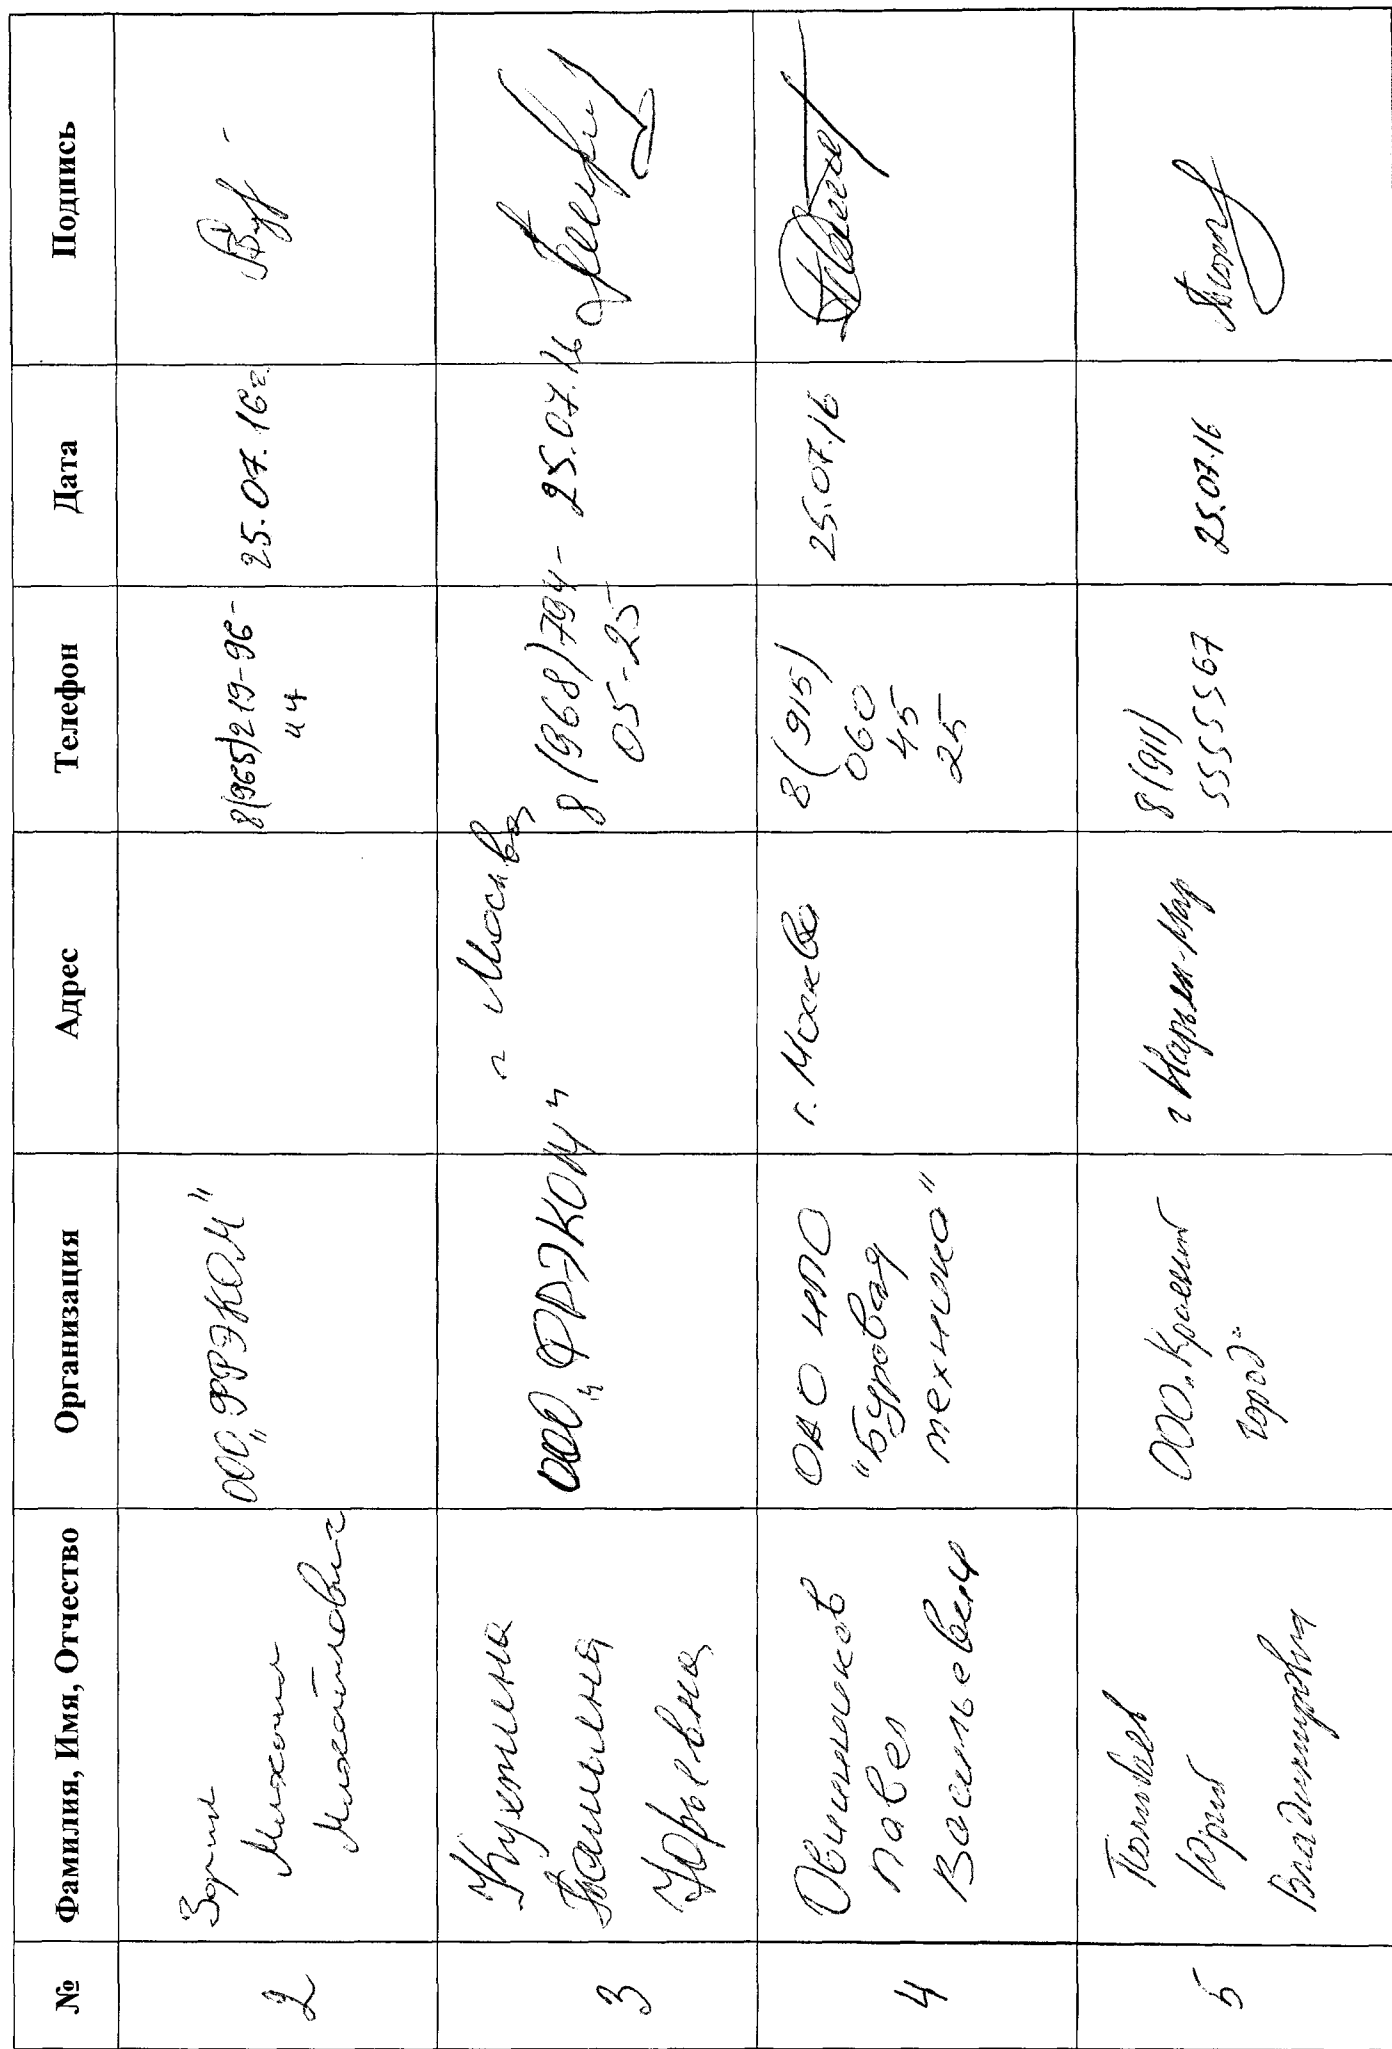 № Фамилия, Имя, Отчество Организация Адрес Телефон Дата Подпись
2
Зорин
Михаил
Михайлович
ООО „ФРЭКОМ"
8(965)219-96-
44
25.07.16г.
3
Кухтина
Юрьевна
ООО „ФРЭКОМ"
г Москва
8(968)794-
05-25
25.07.16
4
Овчинников
Павел
Васильевич
ОАО НПО
"Буровая
техника"
г. Москва
8(915)
060
45
25
25.07.16
5
Юрий
Владимирович
ООО „
город"
г Нарьян-Мар
8(911)
5555567
25.07.16